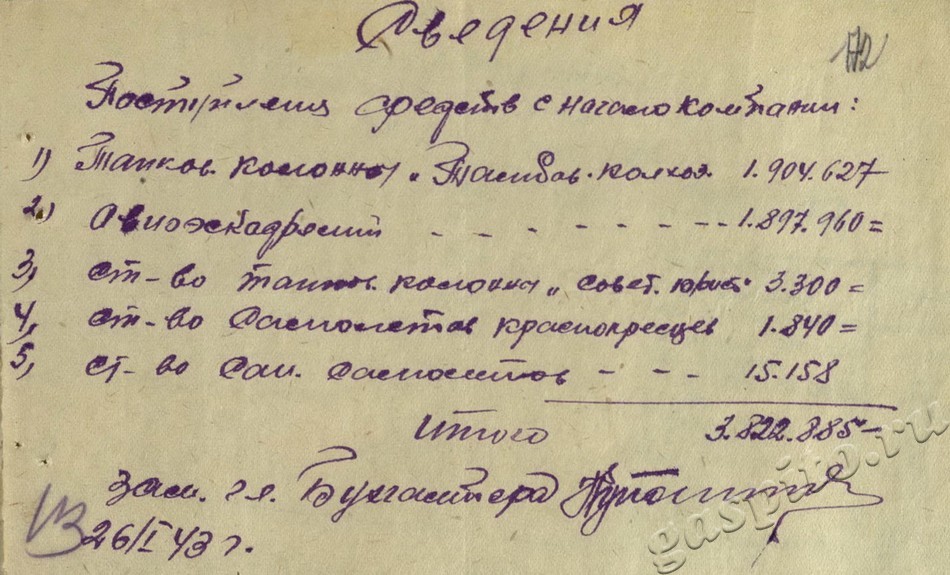 Сведения
172
Поступления средств с начало компании:
1) Танков. колонны „Тамбов. колхоз. 1.904.627
2) Авиоэскадрелий - - - - - - - 1.897.960=
3) ст-во танков. колонны „Совет. юрист" 3.300=
4) ст-во самолетов краснопресцев 1.840=
5) ст-во сан. самолетов - - - 15.158
Итого 3.822.885-
Зам. гл. Бухгалтера
26/I 43 г.
gaspito.ru